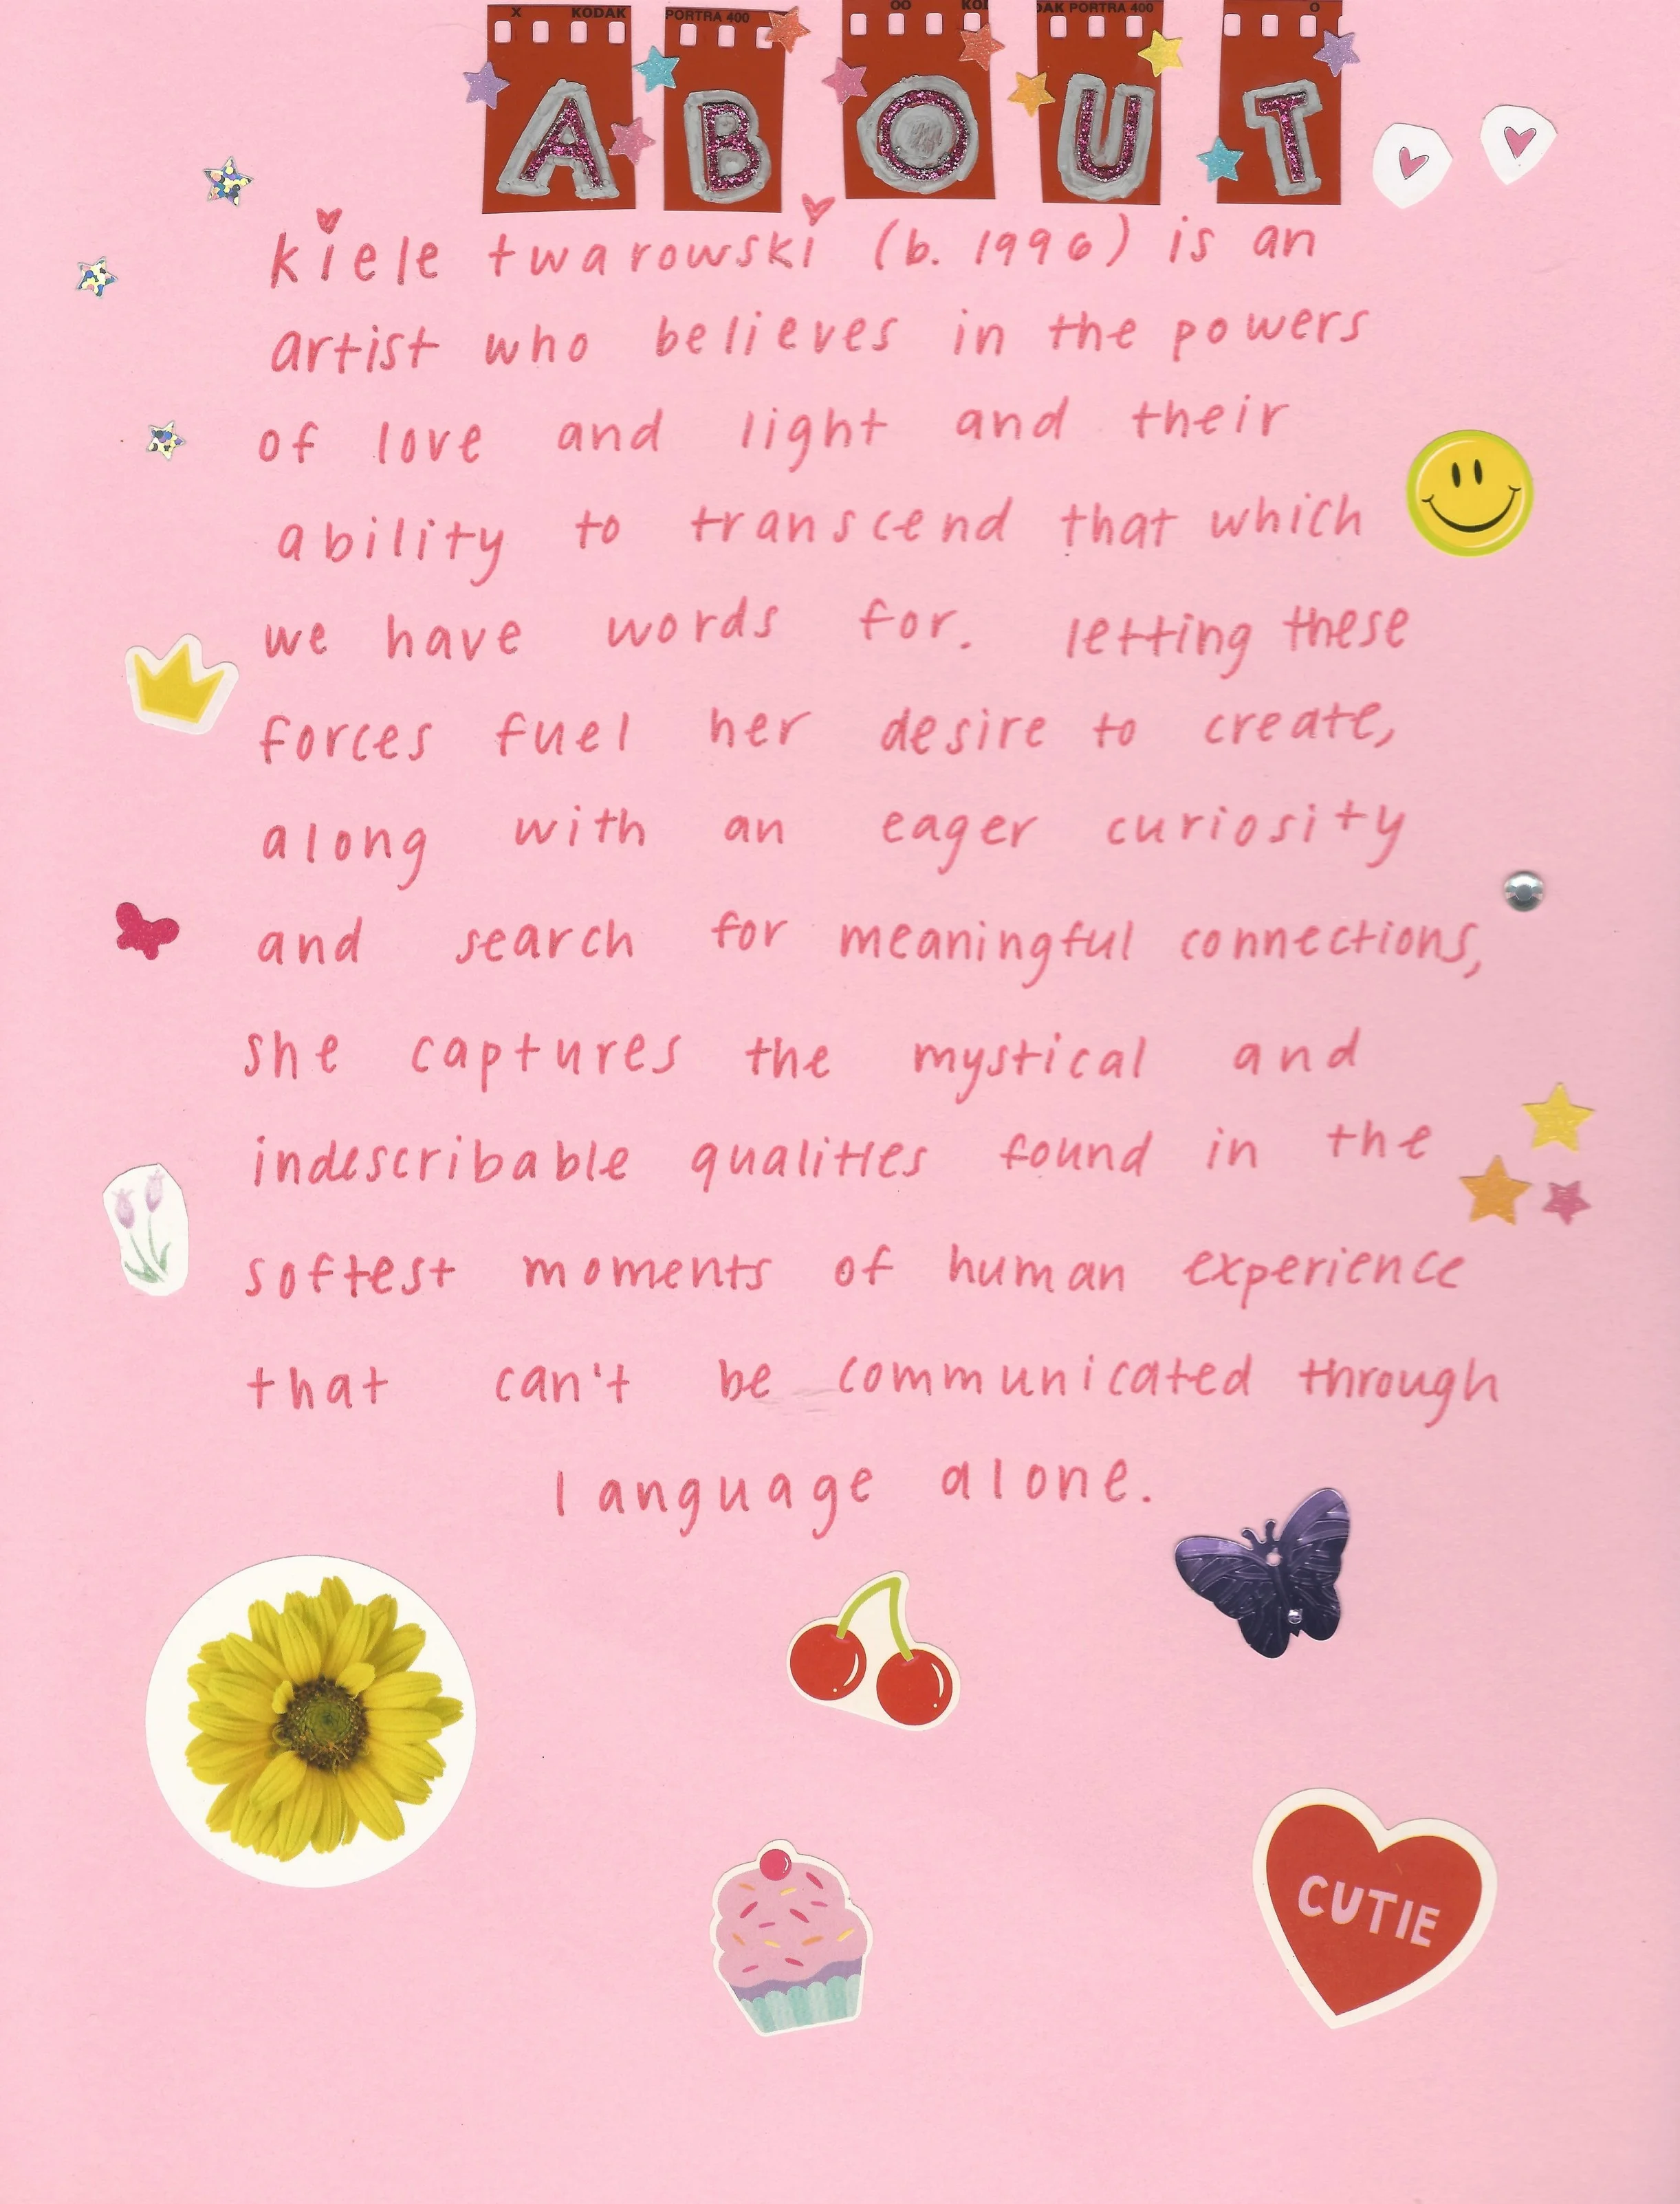 X KODAK PORTRA 400 OO KOD DAK PORTRA 400 O
ABOUT
kiele twarowski (b. 1996) is an
artist who believes in the powers
of love and light and their
ability to transcend that which
we have words for. letting these
forces fuel her desire to create,
along with an eager curiosity
and search for meaningful connections,
she captures the mystical and
indescribable qualities found in the
softest moments of human experience
that can't be communicated through
language alone.
CUTIE